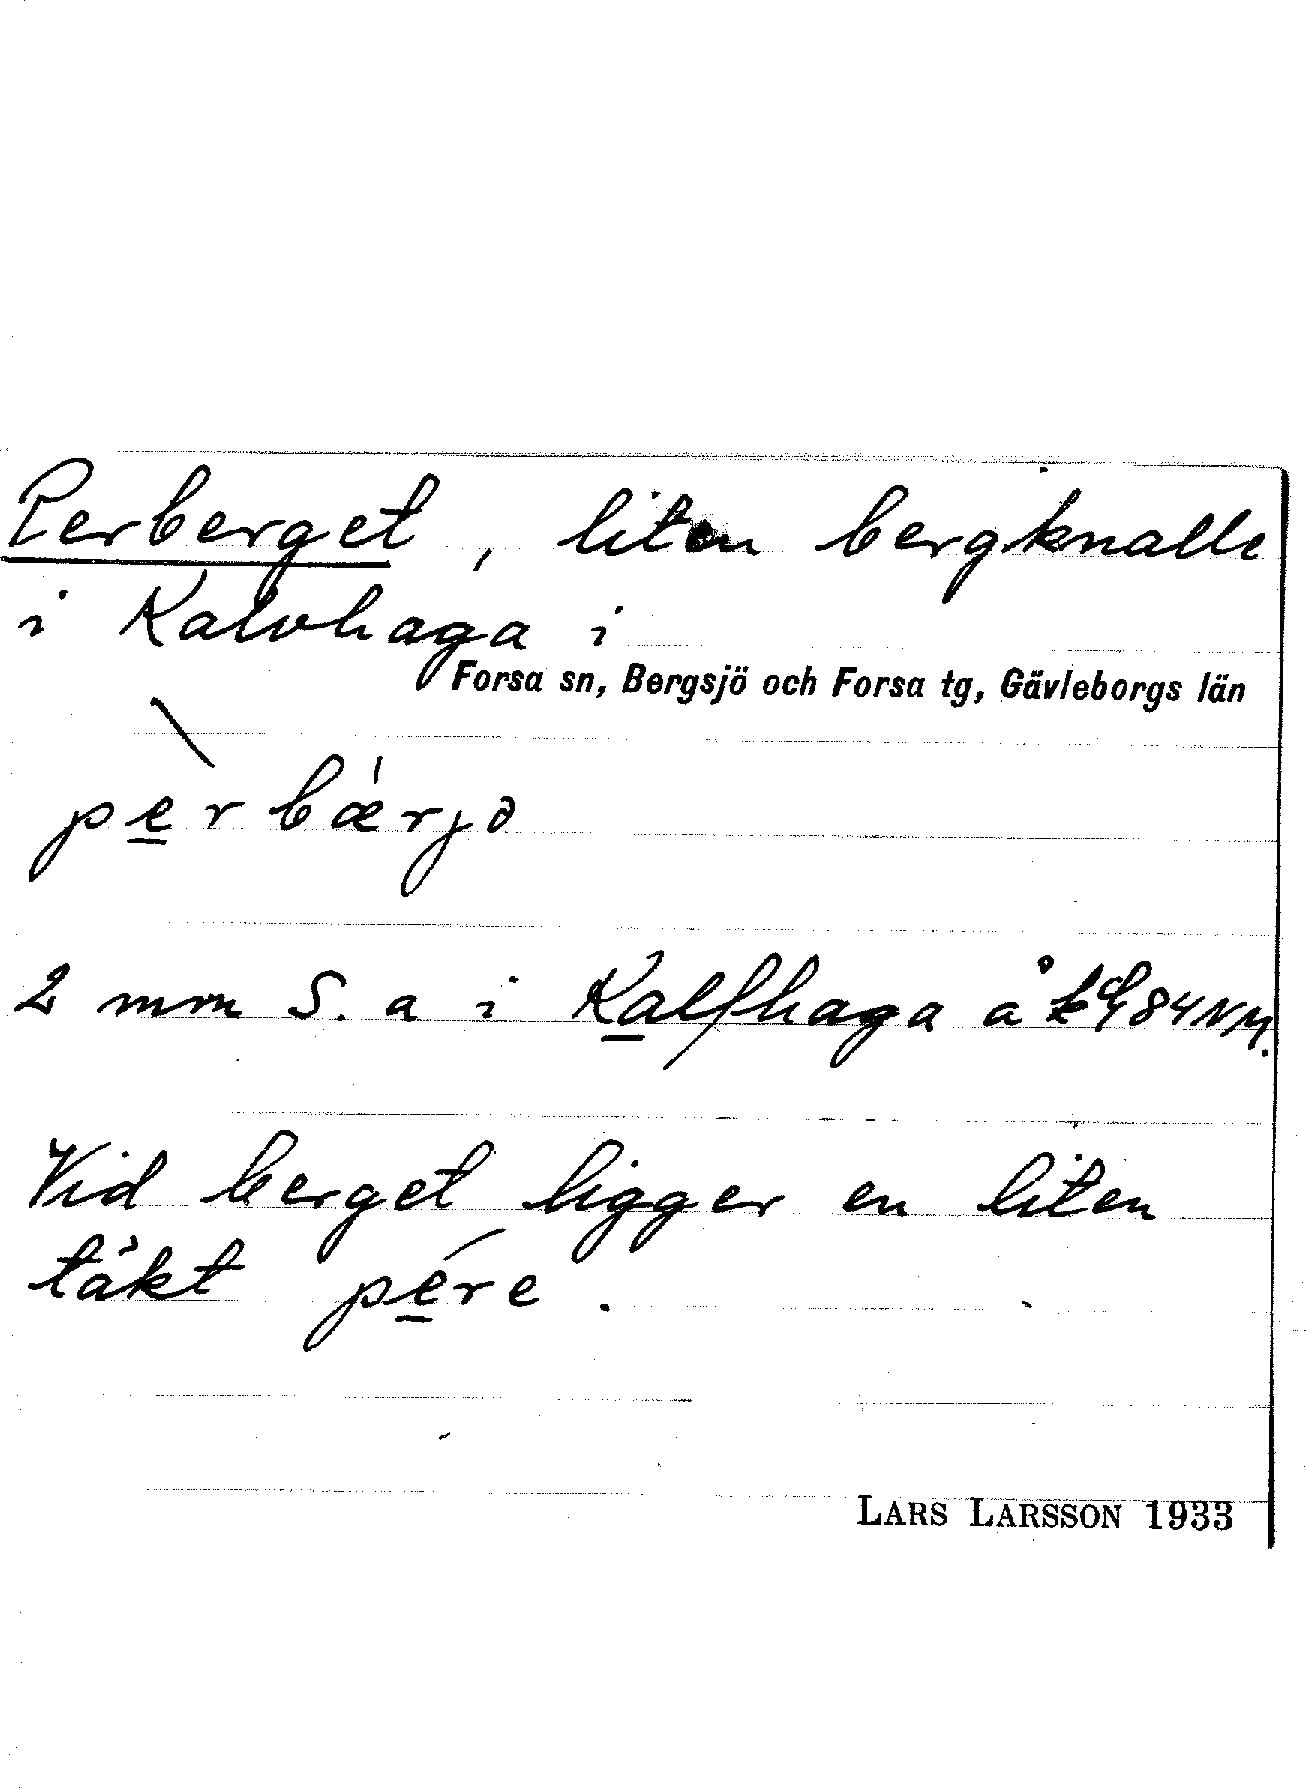 Perberget, liten bergknalle
i Kalvhaga i
Forsa sn, Bergsjö och Forsa tg, Gävleborgs län
pèr bǽrjə
2 mm S. a i Kalfhaga å 84 NM.
Vid berget ligger en liten
täkt pére.
LARS LARSSON 1933